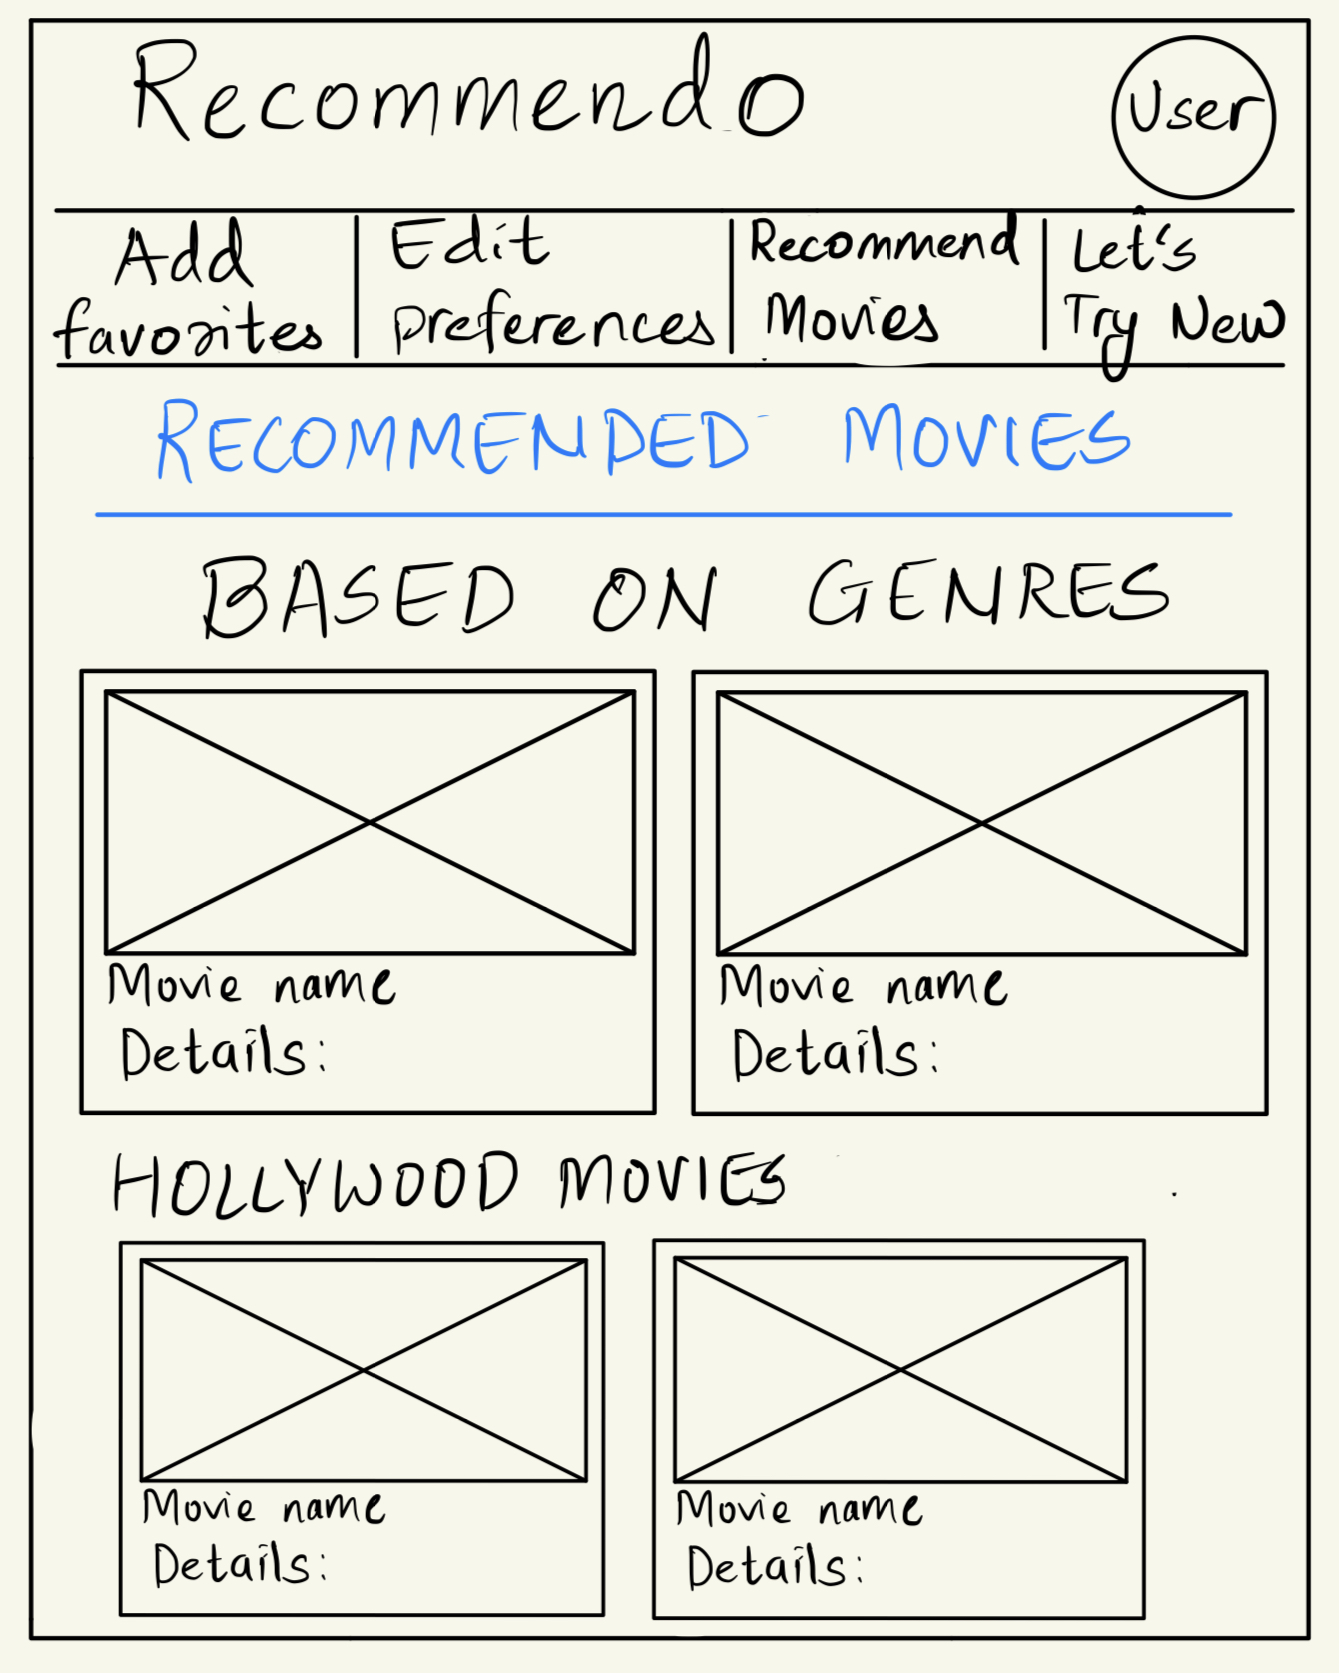 Recommendo
User
Add
favorites
Edit
preferences
Recommend
Movies
Let's
Try New
RECOMMENDED MOVIES
BASED ON GENRES
Movie name
Details:
Movie name
Details:
HOLLYWOOD MOVIES
Movie name
Details:
Movie name
Details: